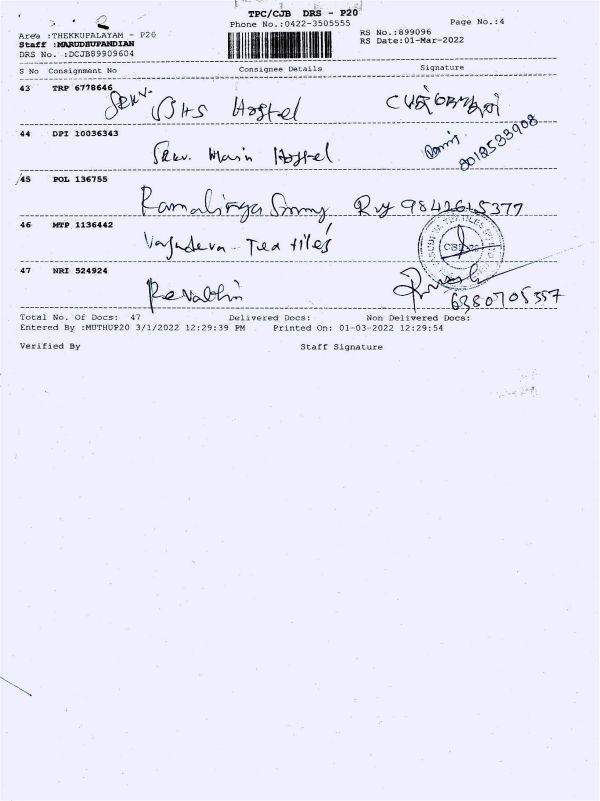 TPC/CJB DRS - P20
Phone No.:0422-3505555
Page No.:4
Area :THEKKUPALAYAM - P20
RS No.:899096
Staff :MARUDHUPANDIAN
RS Date:01-Mar-2022
DRS No. :DCJB89909604
S No Consignment No Consignee Details Signature
43 TRP 6778646
Hostel
44 DPI 10036343
Main Hostel
8018533908
45 POL 136755
Ramalinga 9842615377
46 MTP 1136442
47 NRI 524924
6380705357
Total No. Of Docs: 47 Delivered Docs: Non Delivered Docs:
Entered By :MUTHUP20 3/1/2022 12:29:39 PM Printed On: 01-03-2022 12:29:54
Verified By Staff Signature